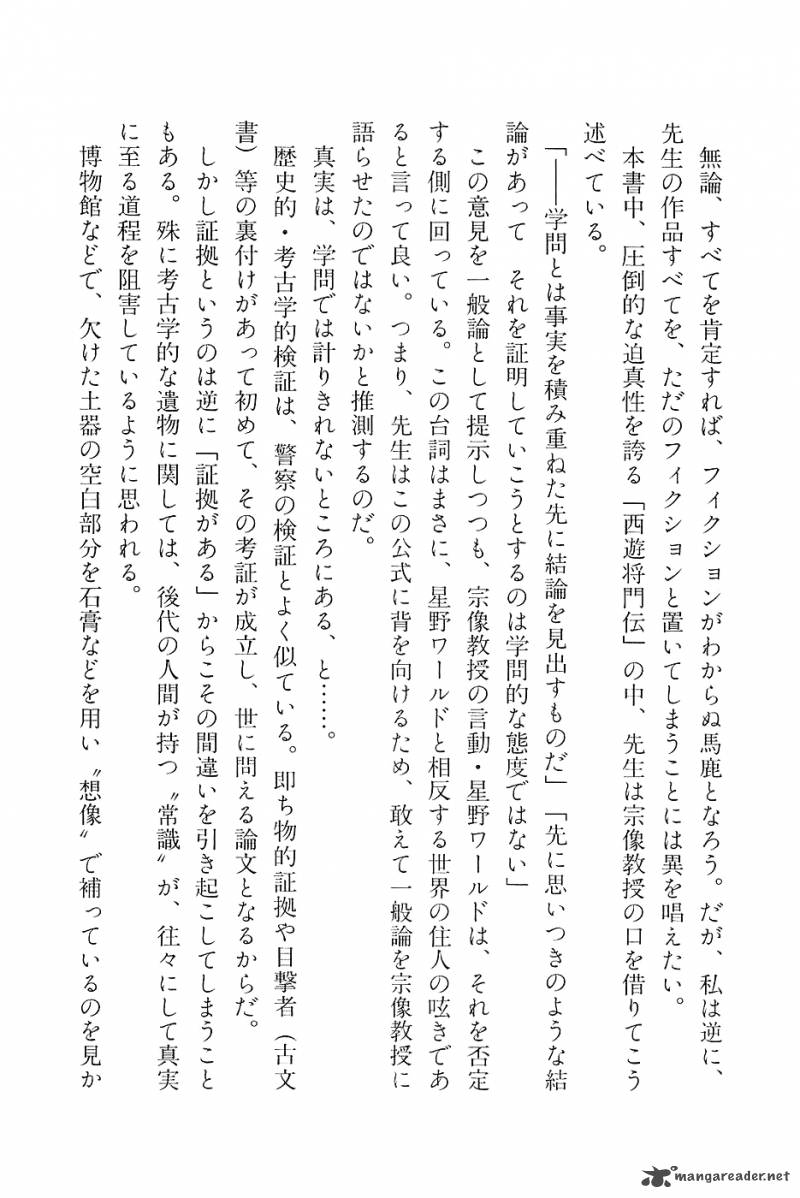 無論、すべてを肯定すれば、フィクションがわからぬ馬鹿となろう。だが、私は逆に、
先生の作品すべてを、ただのフィクションと置いてしまうことには異を唱えたい。
本書中、圧倒的な迫真性を誇る「西遊将門伝」の中、先生は宗像教授の口を借りてこう
述べている。
「――学問とは事実を積み重ねた先に結論を見出すものだ」「先に思いつきのような結
論があって　それを証明していこうとするのは学問的な態度ではない」
この意見を一般論として提示しつつも、宗像教授の言動・星野ワールドは、それを否定
する側に回っている。この台詞はまさに、星野ワールドと相反する世界の住人の呟きであ
ると言って良い。つまり、先生はこの公式に背を向けるため、敢えて一般論を宗像教授に
語らせたのではないかと推測するのだ。
真実は、学問では計りきれないところにある、と……。
歴史的・考古学的検証は、警察の検証とよく似ている。即ち物的証拠や目撃者（古文
書）等の裏付けがあって初めて、その考証が成立し、世に問える論文となるからだ。
しかし証拠というのは逆に「証拠がある」からこその間違いを引き起こしてしまうこと
もある。殊に考古学的な遺物に関しては、後代の人間が持つ〝常識〟が、往々にして真実
に至る道程を阻害しているように思われる。
博物館などで、欠けた土器の空白部分を石膏などを用い〝想像〟で補っているのを見か
mangareader.net